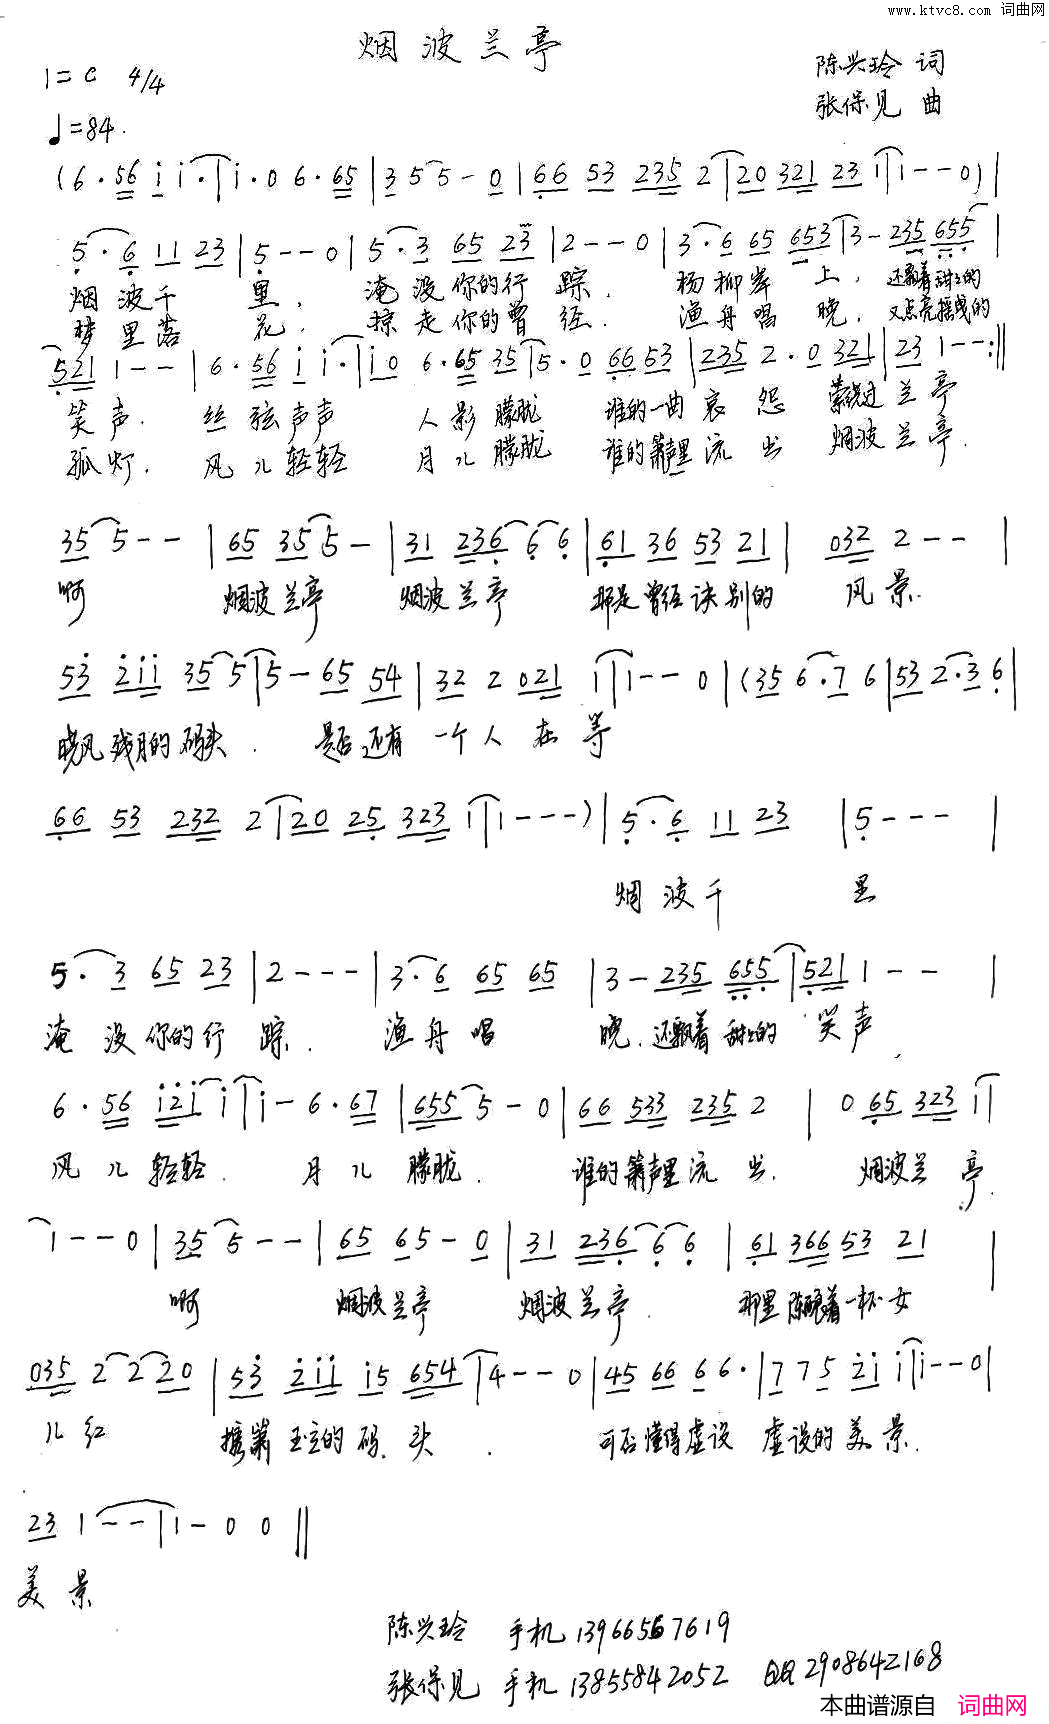 www.ktvc8.com 词曲网
烟波兰亭
1=C 4/4
陈兴玲 词
♩=84.
张保见 曲
(6·56 i i·|i·0 6·65|3 5 5-0|66 53 235 2|20 321 23 1|1--0)|
5·6 11 23|5--0|5·3 65 23|2--0|3·6 65 653|3-235 655|
烟波千里, 淹没你的行踪. 杨柳岸上, 还飘着甜甜的
梦里落花, 掠走你的曾经. 渔舟唱晚, 又点亮摇曳的
521 1--|6·56 i i·|i0 6·65 35|5·0 66 53|235 2·0 321|23 1--:||
笑声. 丝弦声声 人影朦胧 谁的一曲哀怨 萦绕过兰亭
孤灯. 风儿轻轻 月儿朦胧 谁的箫声里流出 烟波兰亭.
35 5--|65 35 5-|31 236 6 6|61 36 53 21|032 2--|
啊 烟波兰亭 烟波兰亭 那是曾经诀别的风景.
53 2ii 35 5|5-65 54|32 2 021 1|1--0|(35 6·7 6|53 2·3 6|
晓风残月的码头. 是否还有一个人在等
66 53 232 2|20 25 323 1|1---)|5·6 11 23|5---|
烟波千里
5·3 65 23|2---|3·6 65 65|3-235 655|521 1--|
淹没你的行踪. 渔舟唱晚. 还飘着甜甜的笑声.
6·56 i2i i|i-6·67|655 5-0|66 533 235 2|0 65 323 1|
风儿轻轻. 月儿朦胧. 谁的箫声里流出. 烟波兰亭.
1--0|35 5--|65 65-0|31 236 6 6|61 366 53 21|
啊 烟波兰亭 烟波兰亭. 那里陈酿着一杯女
035 2 2 20|53 2ii i5 654|4--0|45 66 6 6·|7 7 5 2i i|i--0|
儿红 携箫玉立的码头. 可否懂得虚设 虚设的美景.
23 1--|1-0 0||
美景
陈兴玲 手机 13966567619
张保见 手机 13855842052 QQ2908642168
本曲谱源自 词曲网